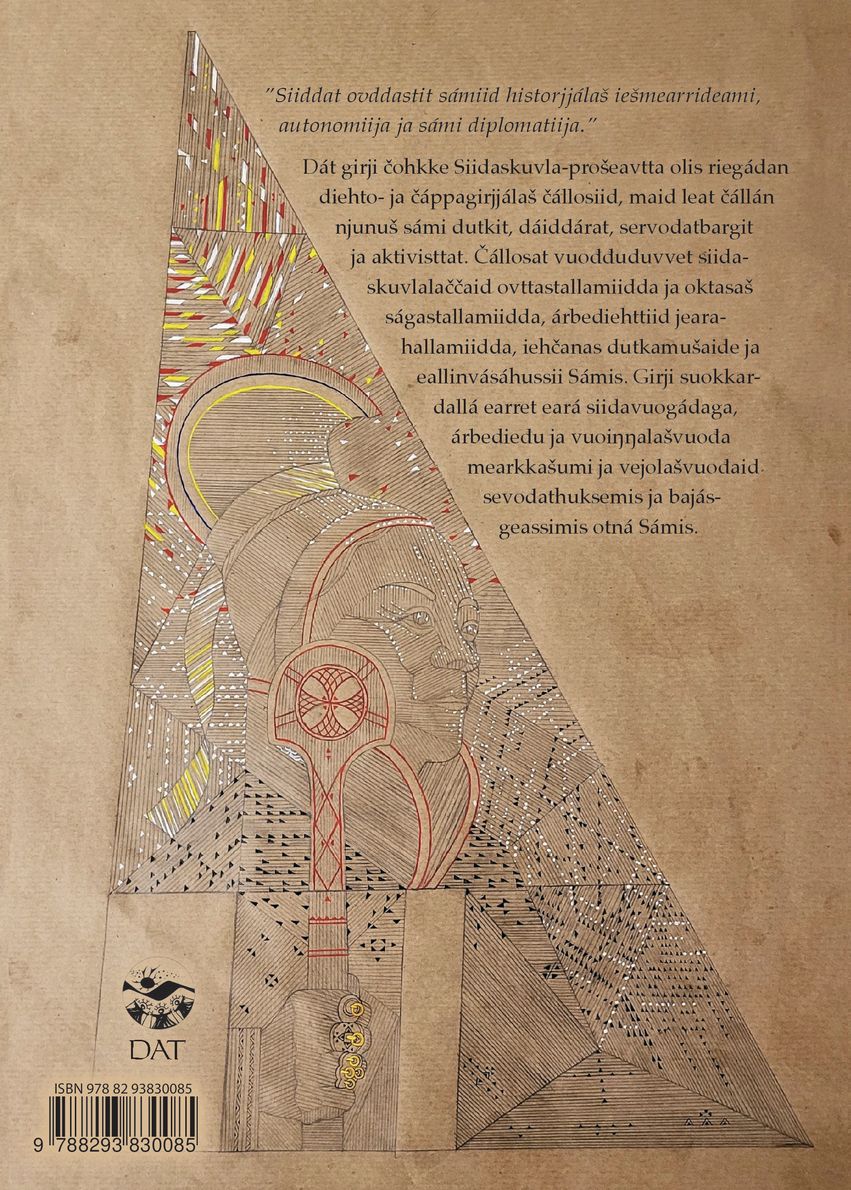 ”Siiddat ovddastit sámiid historjjálaš iešmearrideami,
autonomiija ja sámi diplomatiija.”
Dát girji čohkke Siidaskuvla-prošeavtta olis riegádan
diehto- ja čáppagirjjálaš čállosiid, maid leat čállán
njunuš sámi dutkit, dáiddárat, servodatbargit
ja aktivisttat. Čállosat vuodduduvvet siida-
skuvlalaččaid ovttastallamiidda ja oktasaš
ságastallamiidda, árbediehttiid jeara-
hallamiidda, iehčanas dutkamušaide ja
eallinvásáhussii Sámis. Girji suokkar-
dallá earret eará siidavuogádaga,
árbediedu ja vuoiŋŋalašvuoda
mearkkašumi ja vejolašvuodaid
sevodathuksemis ja bajás-
geassimis otná Sámis.
DAT
ISBN 978 82 93830085
9 788293 830085